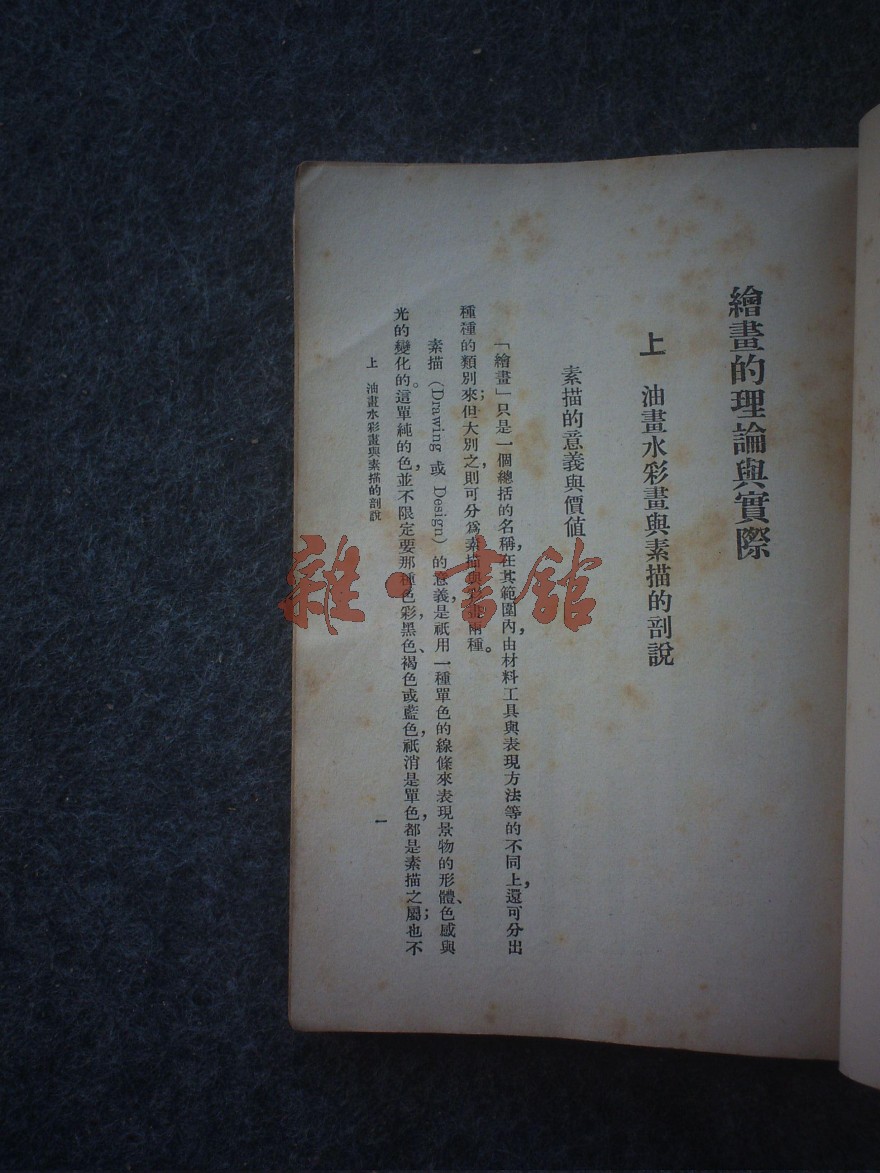 繪畫的理論與實際
上　油畫水彩畫與素描的剖說
素描的意義與價值
「繪畫」只是一個總括的名稱，在其範圍內，由材料工具與表現方法等的不同上，還可分出
種種的類別來；但大別之，則可分爲素描與彩畫兩種。
素描（Drawing 或 Design）的意義，是祇用一種單色的線條來表現景物的形體、色感與
光的變化的。這單純的色，並不限定要那種色彩，黑色、褐色或藍色，祇消是單色，都是素描之屬；也不
上　油畫水彩畫與素描的剖說
一
雜·書館